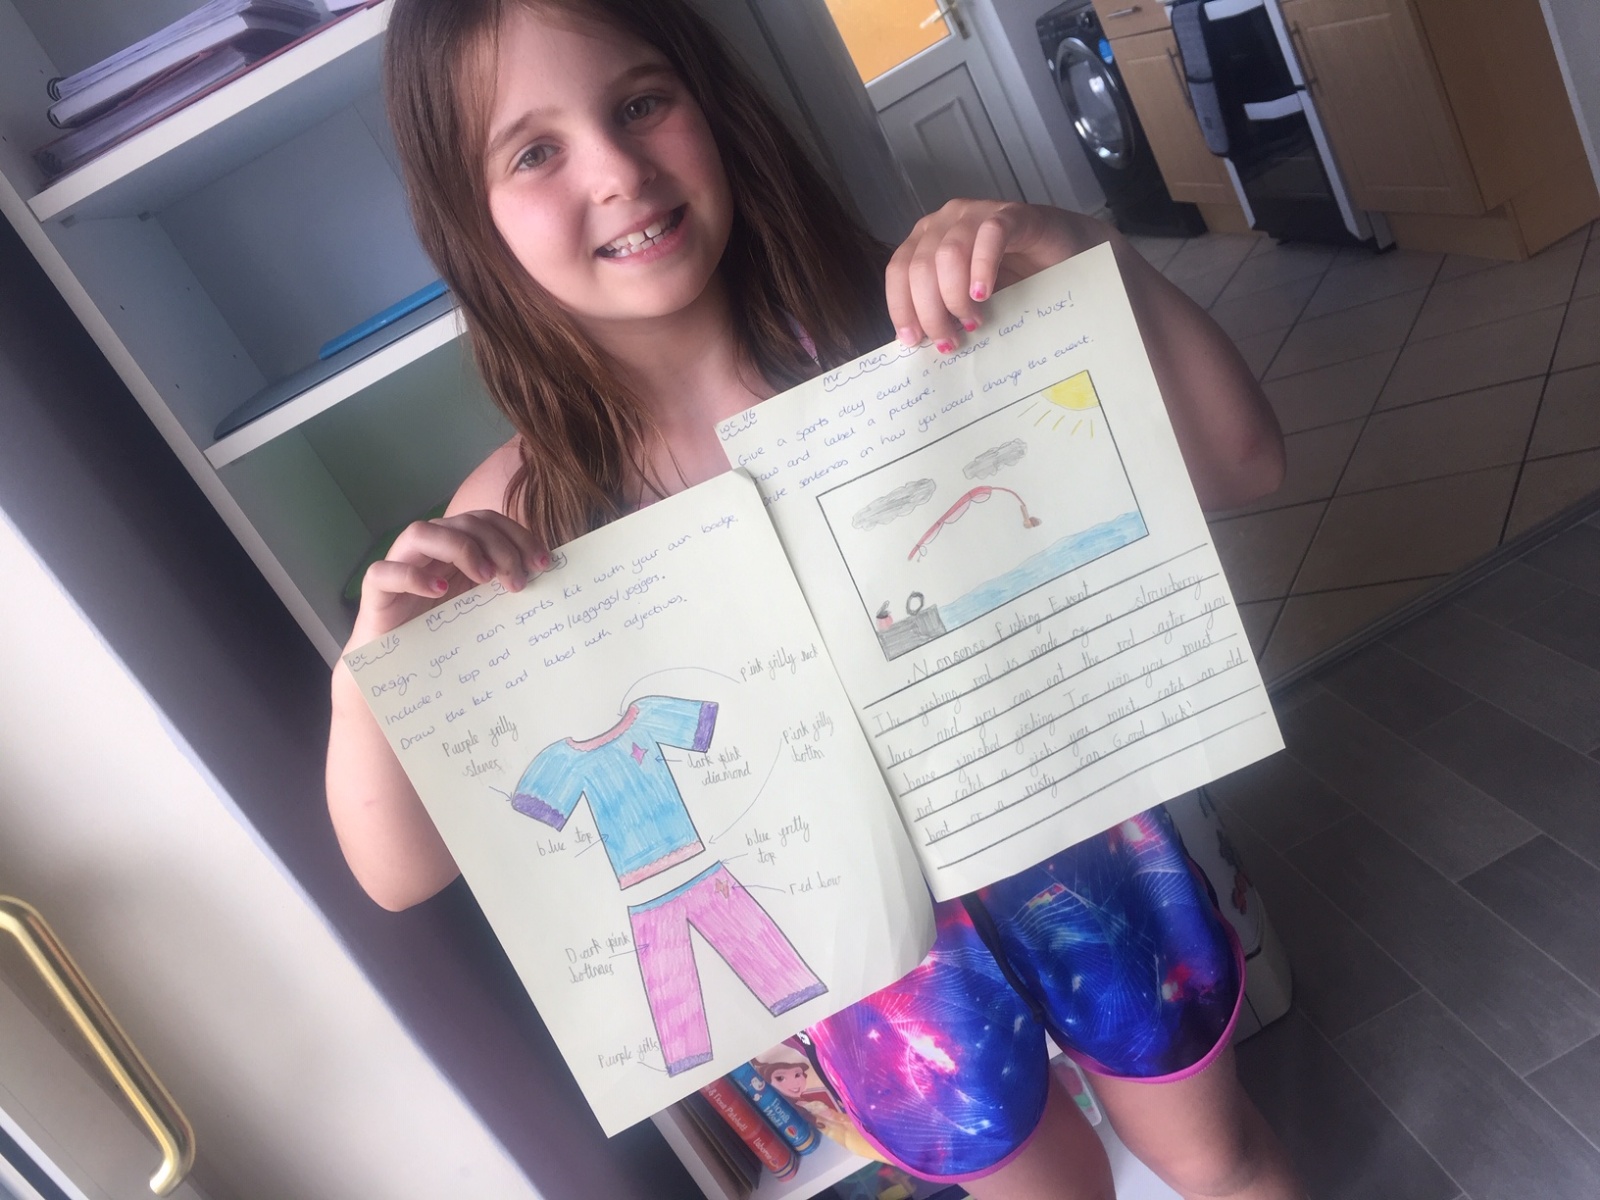 wc 1/6
Mr Men
Design your own sports kit with your own badge.
Include a top and shorts/leggings/joggers.
Draw the kit and label with adjectives.
Pink frilly neck
Purple frilly
sleves
dark pink
diamond
Pink frilly
bottm
blue top
blue fretty
top
red bow
Dark pink
Purple frills
wc 1/6
Mr Men
Give a sports day event a "nonsense land" twist!
and label a picture.
sentences on how you would change the event.
Nonsense Fishing Event
The fishing rod is made of a strawberry
lace and you can eat the rod after you
have finished fishing. To win you must
not catch a fish you must catch an old
boot or a rusty can. Good luck!